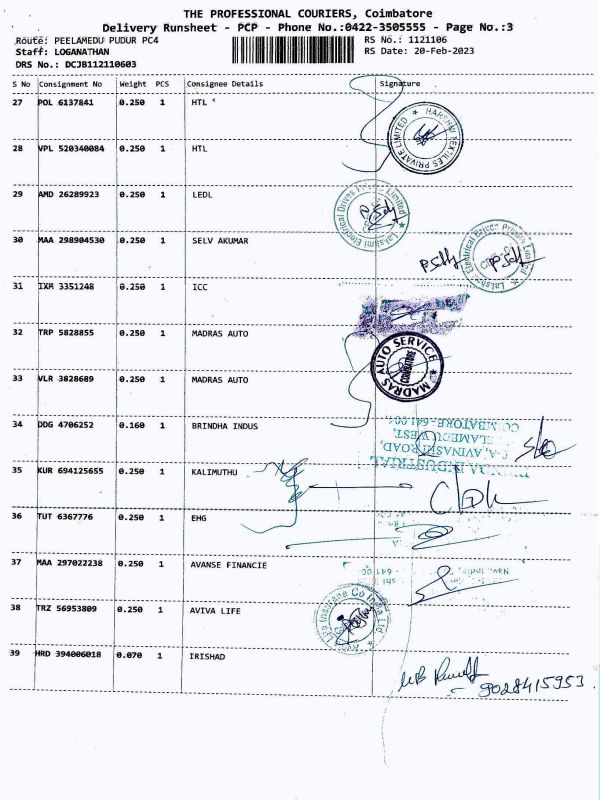 THE PROFESSIONAL COURIERS, Coimbatore
Delivery Runsheet - PCP - Phone No.:0422-3505555 - Page No.:3
Route: PEELAMEDU PUDUR PC4 RS No.: 1121106
Staff: LOGANATHAN RS Date: 20-Feb-2023
DRS No.: DCJB112110603
S No Consignment No Weight PCS Consignee Details Signature
27 POL 6137841 0.250 1 HTL *
HARSHNI TEXTILES PRIVATE LIMITED
28 VPL 520340084 0.250 1 HTL
29 AMD 26289923 0.250 1 LEDL
Lakshmi Electrical Drives Private Limited
30 MAA 298904530 0.250 1 SELV AKUMAR
Lakshmi Electrical Drives Private Limited
31 IXM 3351248 0.250 1 ICC
32 TRP 5828855 0.250 1 MADRAS AUTO
MADRAS AUTO SERVICE
COIMBATORE
33 VLR 3828689 0.250 1 MADRAS AUTO
34 DDG 4706252 0.160 1 BRINDHA INDUS
COIMBATORE-641 004
AVINASHI ROAD,
INDUSTRIAL
35 KUR 694125655 0.250 1 KALIMUTHU
36 TUT 6367776 0.250 1 EHG
37 MAA 297022238 0.250 1 AVANSE FINANCIE
38 TRZ 56953809 0.250 1 AVIVA LIFE
Life Insurance Co India Ltd
39 HRD 394006018 0.070 1 IRISHAD
9028415953